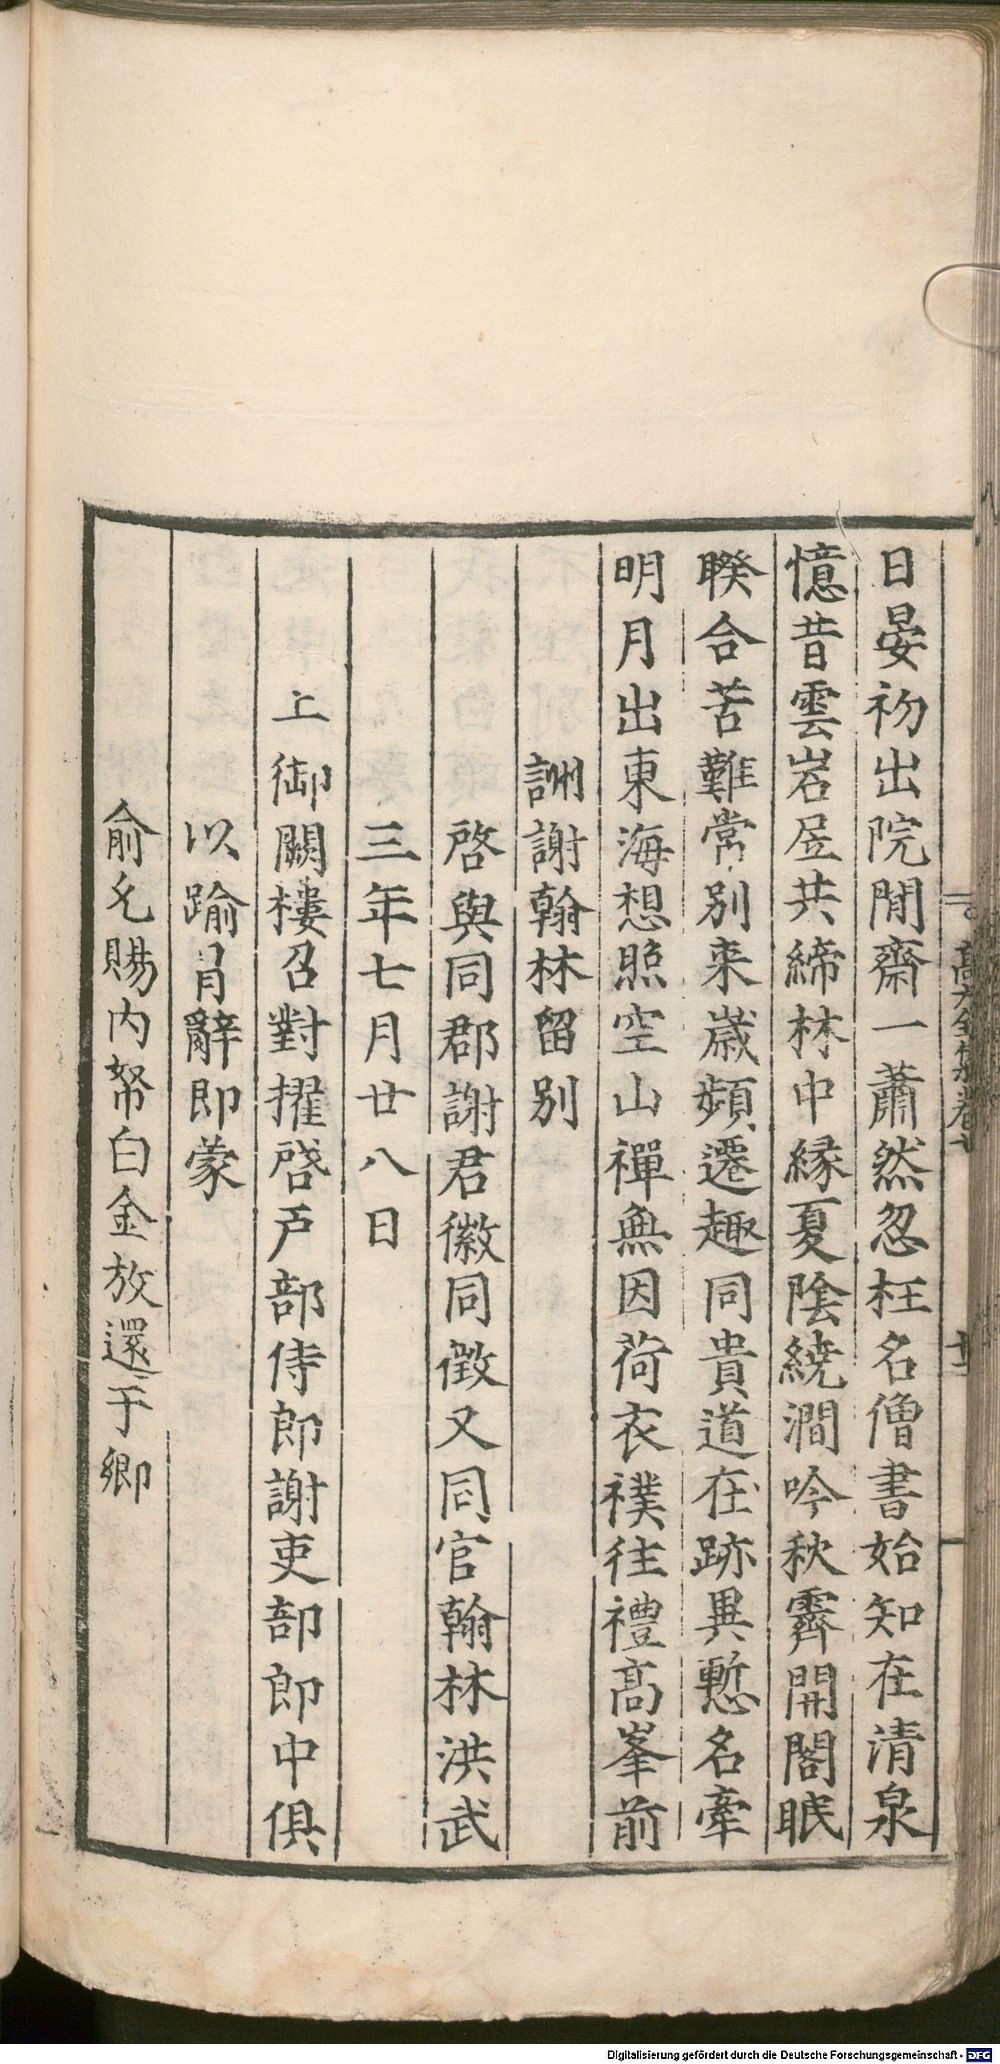 日晏初出院閒齋一蕭然忽枉名僧書始知在清泉
憶昔雲岩居共締林中縁夏陰繞澗吟秋霽開閣眠
睽合苦難常別来嵗頻遷趣同貴道在跡異慙名牽
明月出東海想照空山禪無因荷衣襆往禮髙峯前
詶謝翰林留别
啓與同郡謝君徽同徴又同官翰林洪武
三年七月廿八日
上御闕樓召對擢啓戸部侍郎謝吏部郎中俱
以踰冐辭即蒙
俞允賜内帑白金放還于鄉
髙太全集卷七
十二
Digitalisierung gefördert durch die Deutsche Forschungsgemeinschaft - DFG